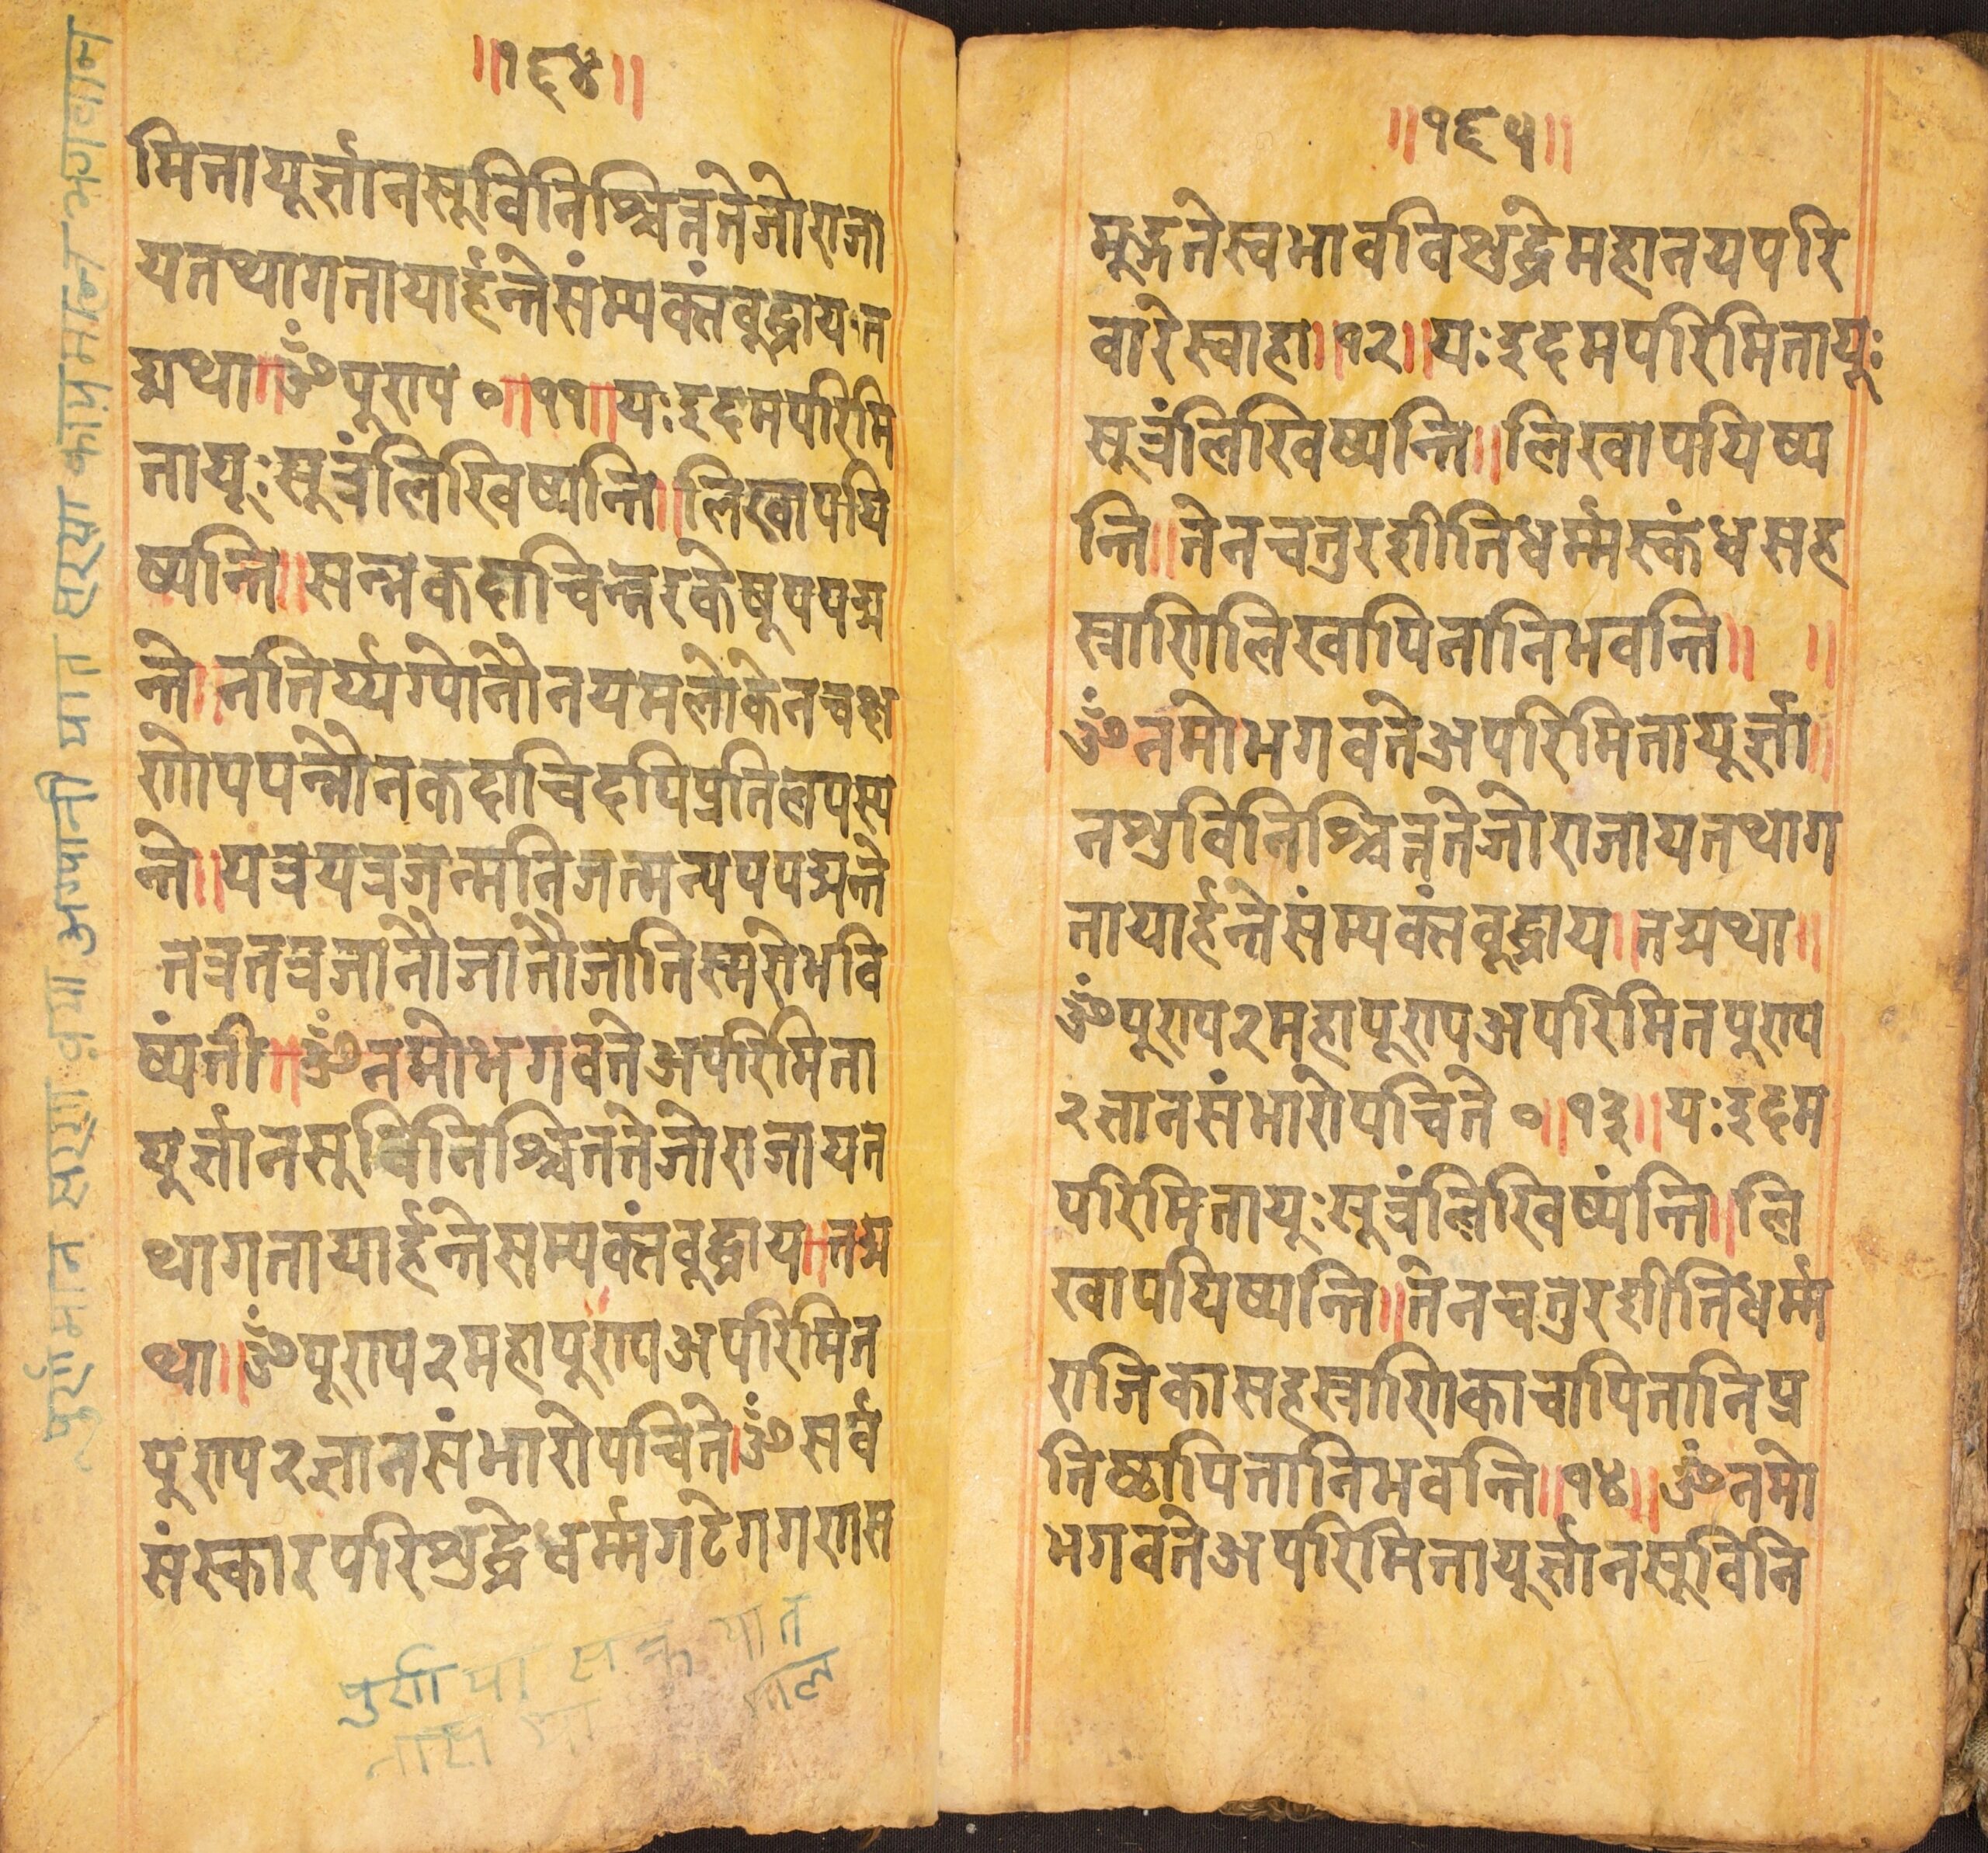 ॥१६४॥
मितायूर्ज्ञानसुविनिश्चित्ततेजोराजा
यतथागतायार्हन्तेसंम्यक्तंबुद्धायत
द्यथा॥ॐपुराप०॥११॥यःइदमपरिमि
तायूःसूत्रंलिखिष्यन्ति॥लिखापयि
ष्यन्ति॥सन्नकदाचिन्नरकेषूपपद्य
न्ते॥नतिर्य्यग्योनौनयमलोकेनच्च
णोपपन्नौनकदाचिदपिप्रतिलपस्य
न्ते॥यत्रयत्रजन्मनिजन्मन्यपपद्यन्ते
तत्रतत्रजातौजातौजातिस्मरोभवि
ष्यंती॥ॐनमोभगवतेअपरिमिता
युर्ज्ञानसुविनिश्चिततेजोराजायत
थागतायार्हन्तेसम्यक्तंबुद्धाय॥तद्य
था॥ॐपूराप२महापुरापअपरिमित
पुराप२ज्ञानसंभारोपचिते॥ॐसर्व
संस्कारपरिशुद्धेधर्म्मगटेगगरास
॥१६५॥
मुद्गतेस्वभावविशुद्धेमहानयपरि
वारेस्वाहा॥१२॥यःइदमपरिमितायूः
सुत्रंलिखिष्यन्ति॥लिखापयिष्य
न्ति॥तेनचतुरशीतिधर्म्मस्कंधसह
स्राणिलिखापितानिभवन्ति॥ ॥
ॐनमोभगवतेअपरिमितायूर्ज्ञा॥
नशुविनिश्चित्ततेजोराजायतथाग
तायार्हन्तेसंम्यक्तंबूद्धाय॥तद्यथा॥
ॐपुराप२महापूरापअपरिमितपुराप
२ज्ञानसंभारोपचिते०॥१३॥यःइदम
परिमितायुःसूत्रंलिखिष्यंन्ति॥लि
खापयिष्यन्ति॥तेनचतुरशीतिधर्म्म
राजिकासहस्राणिकाचापितानिप्र
तिष्ठापितानिभवन्ति॥१४॥ॐनमो
भगवतेअपरिमितायुर्ज्ञानसुविनि